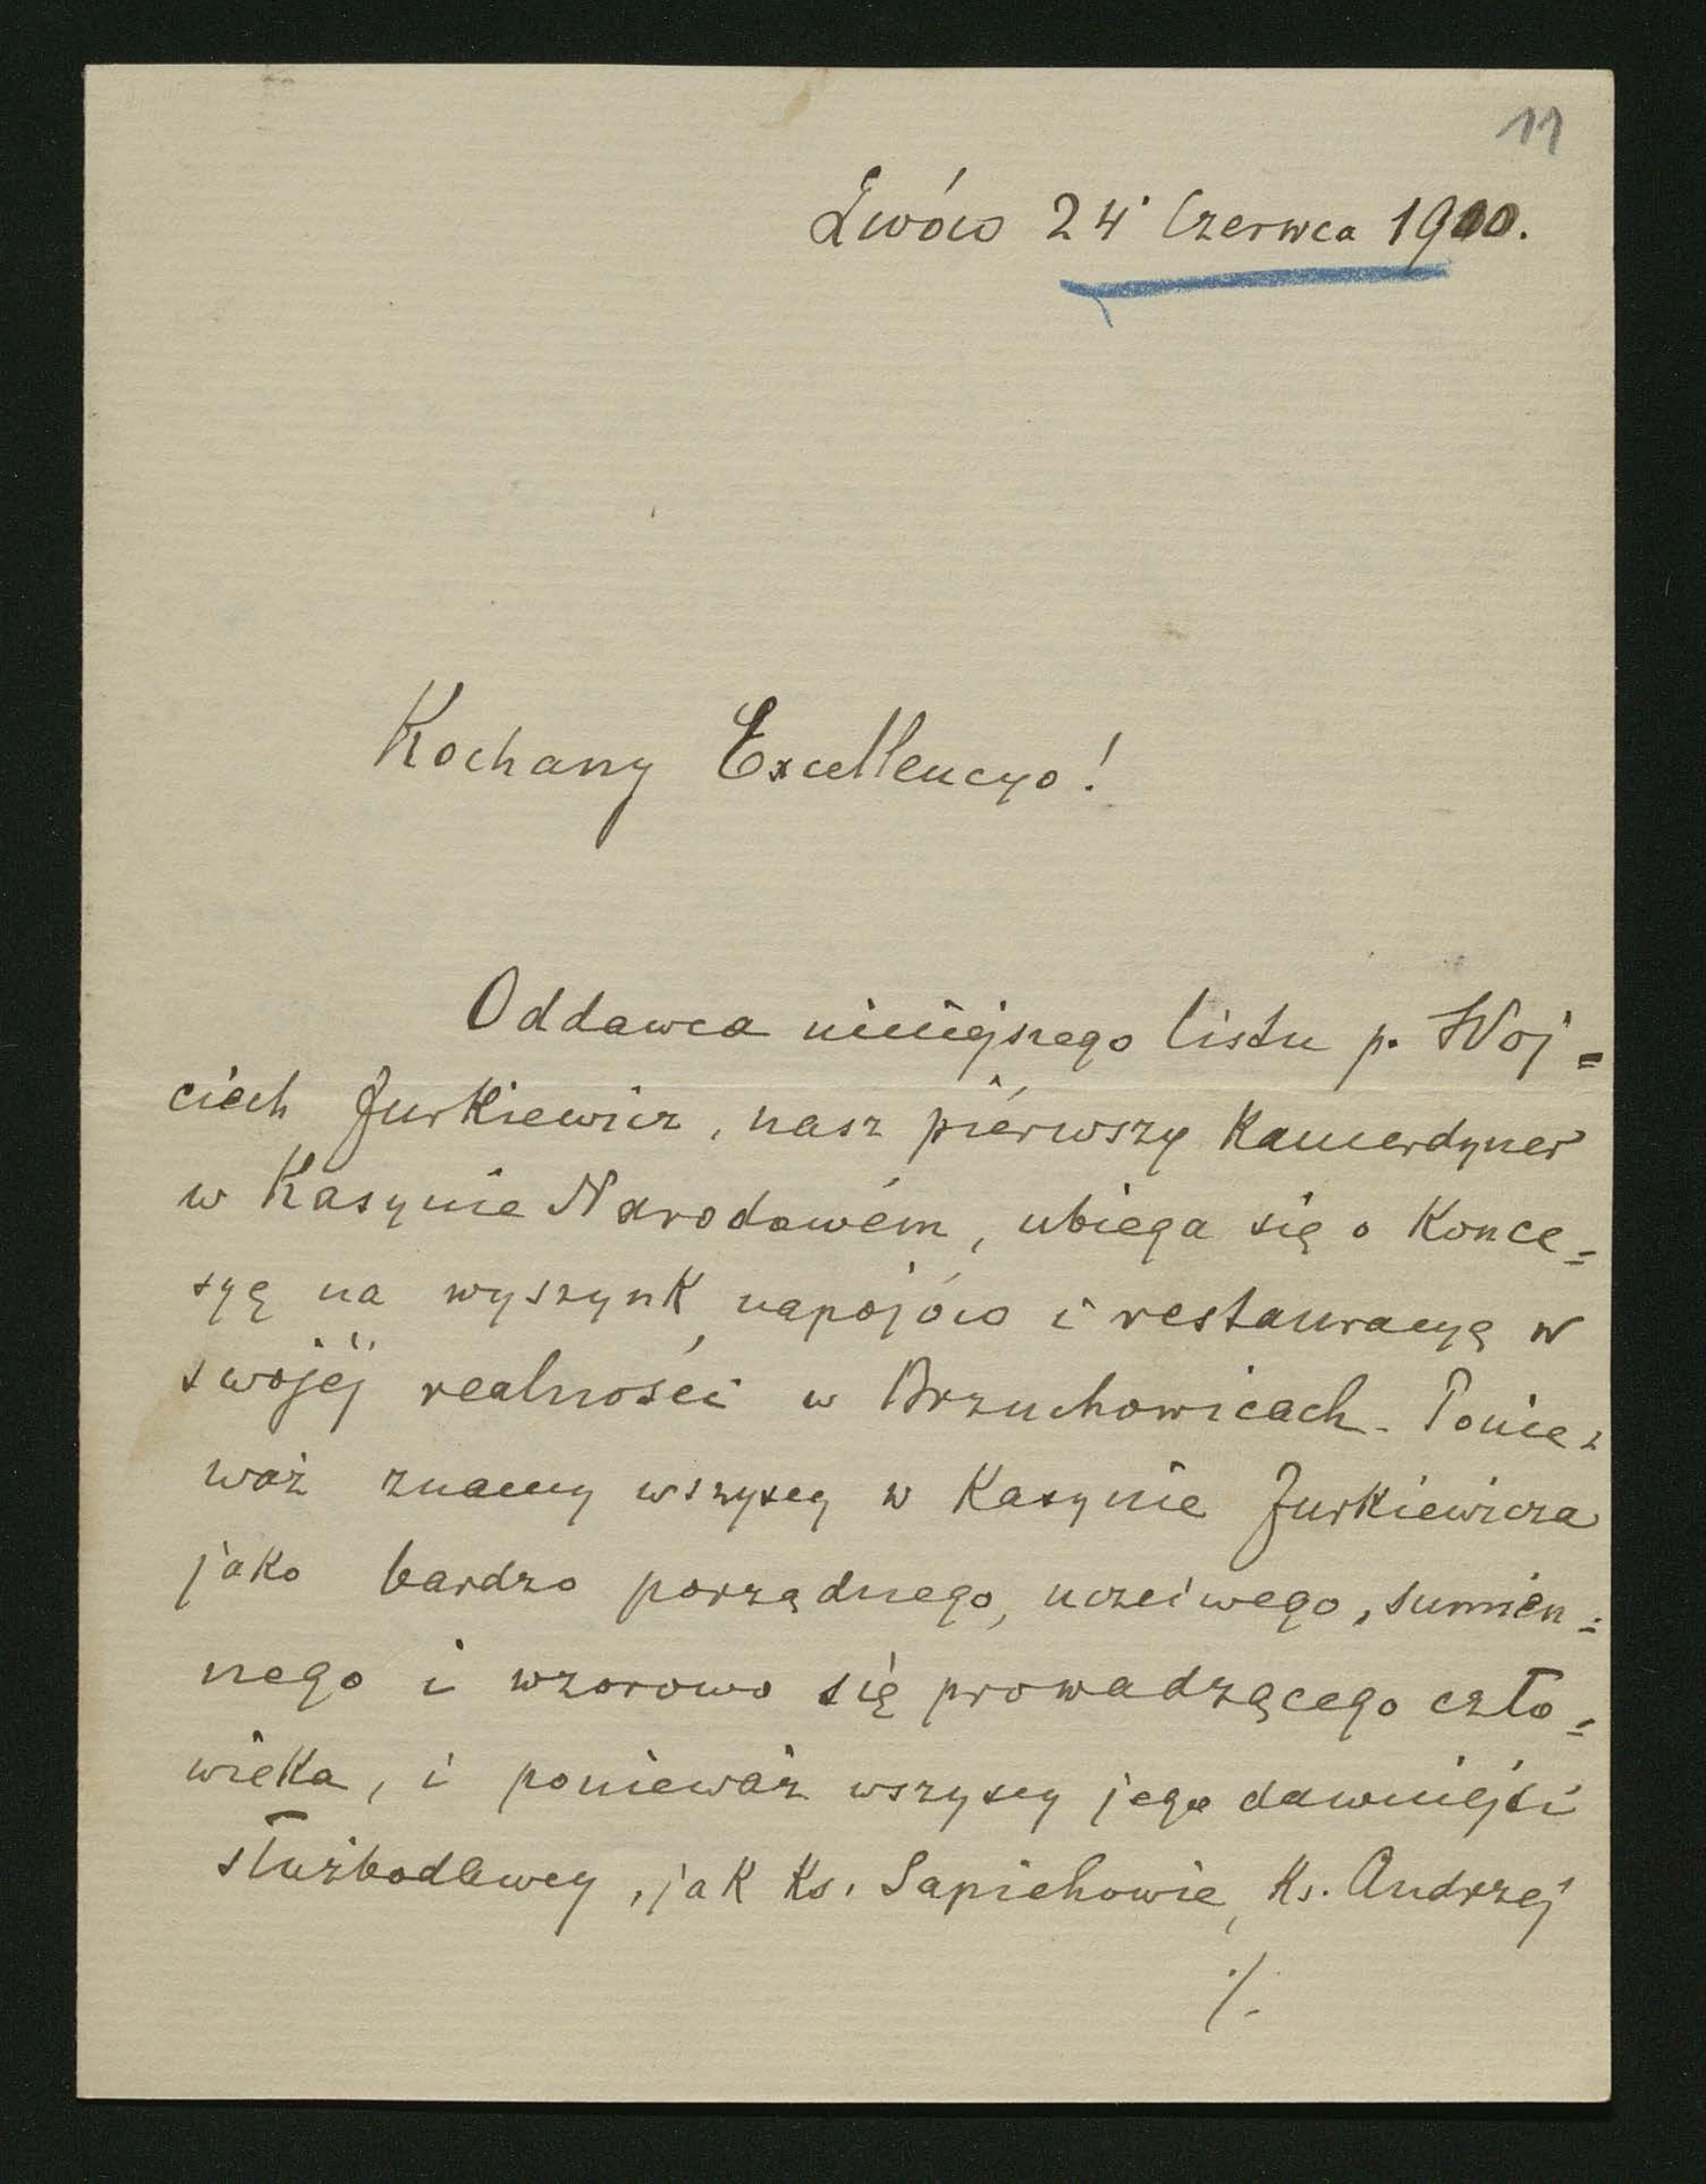 11
Lwów 24 Czerwca 1900.
Kochany Excellencyo!
Oddawca niniejszego listu p. Woj=
ciech Jurkiewicz, nasz piérwszy Kamerdyner
w Kasynie Narodowém, ubiega się o Konce=
syę na wyszynk napojów i restauracyę w
swojéj realności w Brzuchowicach. Ponie=
waż znamy wszyscy w Kasynie Jurkiewicza
jako bardzo porządnego, uczciwego, sumien=
nego i wzorowo się prowadzącego czło=
wieka, i ponieważ wszyscy jego dawniejsi
służbodawcy, jak Ks. Sapiehowie, Ks. Andrzej
./.